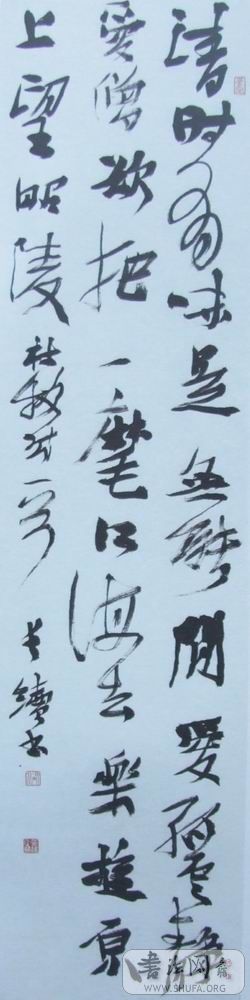 清时有味是無能閒愛孤雲静
愛僧欲把一麾江海去樂遊原
上望昭陵 杜牧诗一首 书
书法网
WWW.SHUFA.ORG